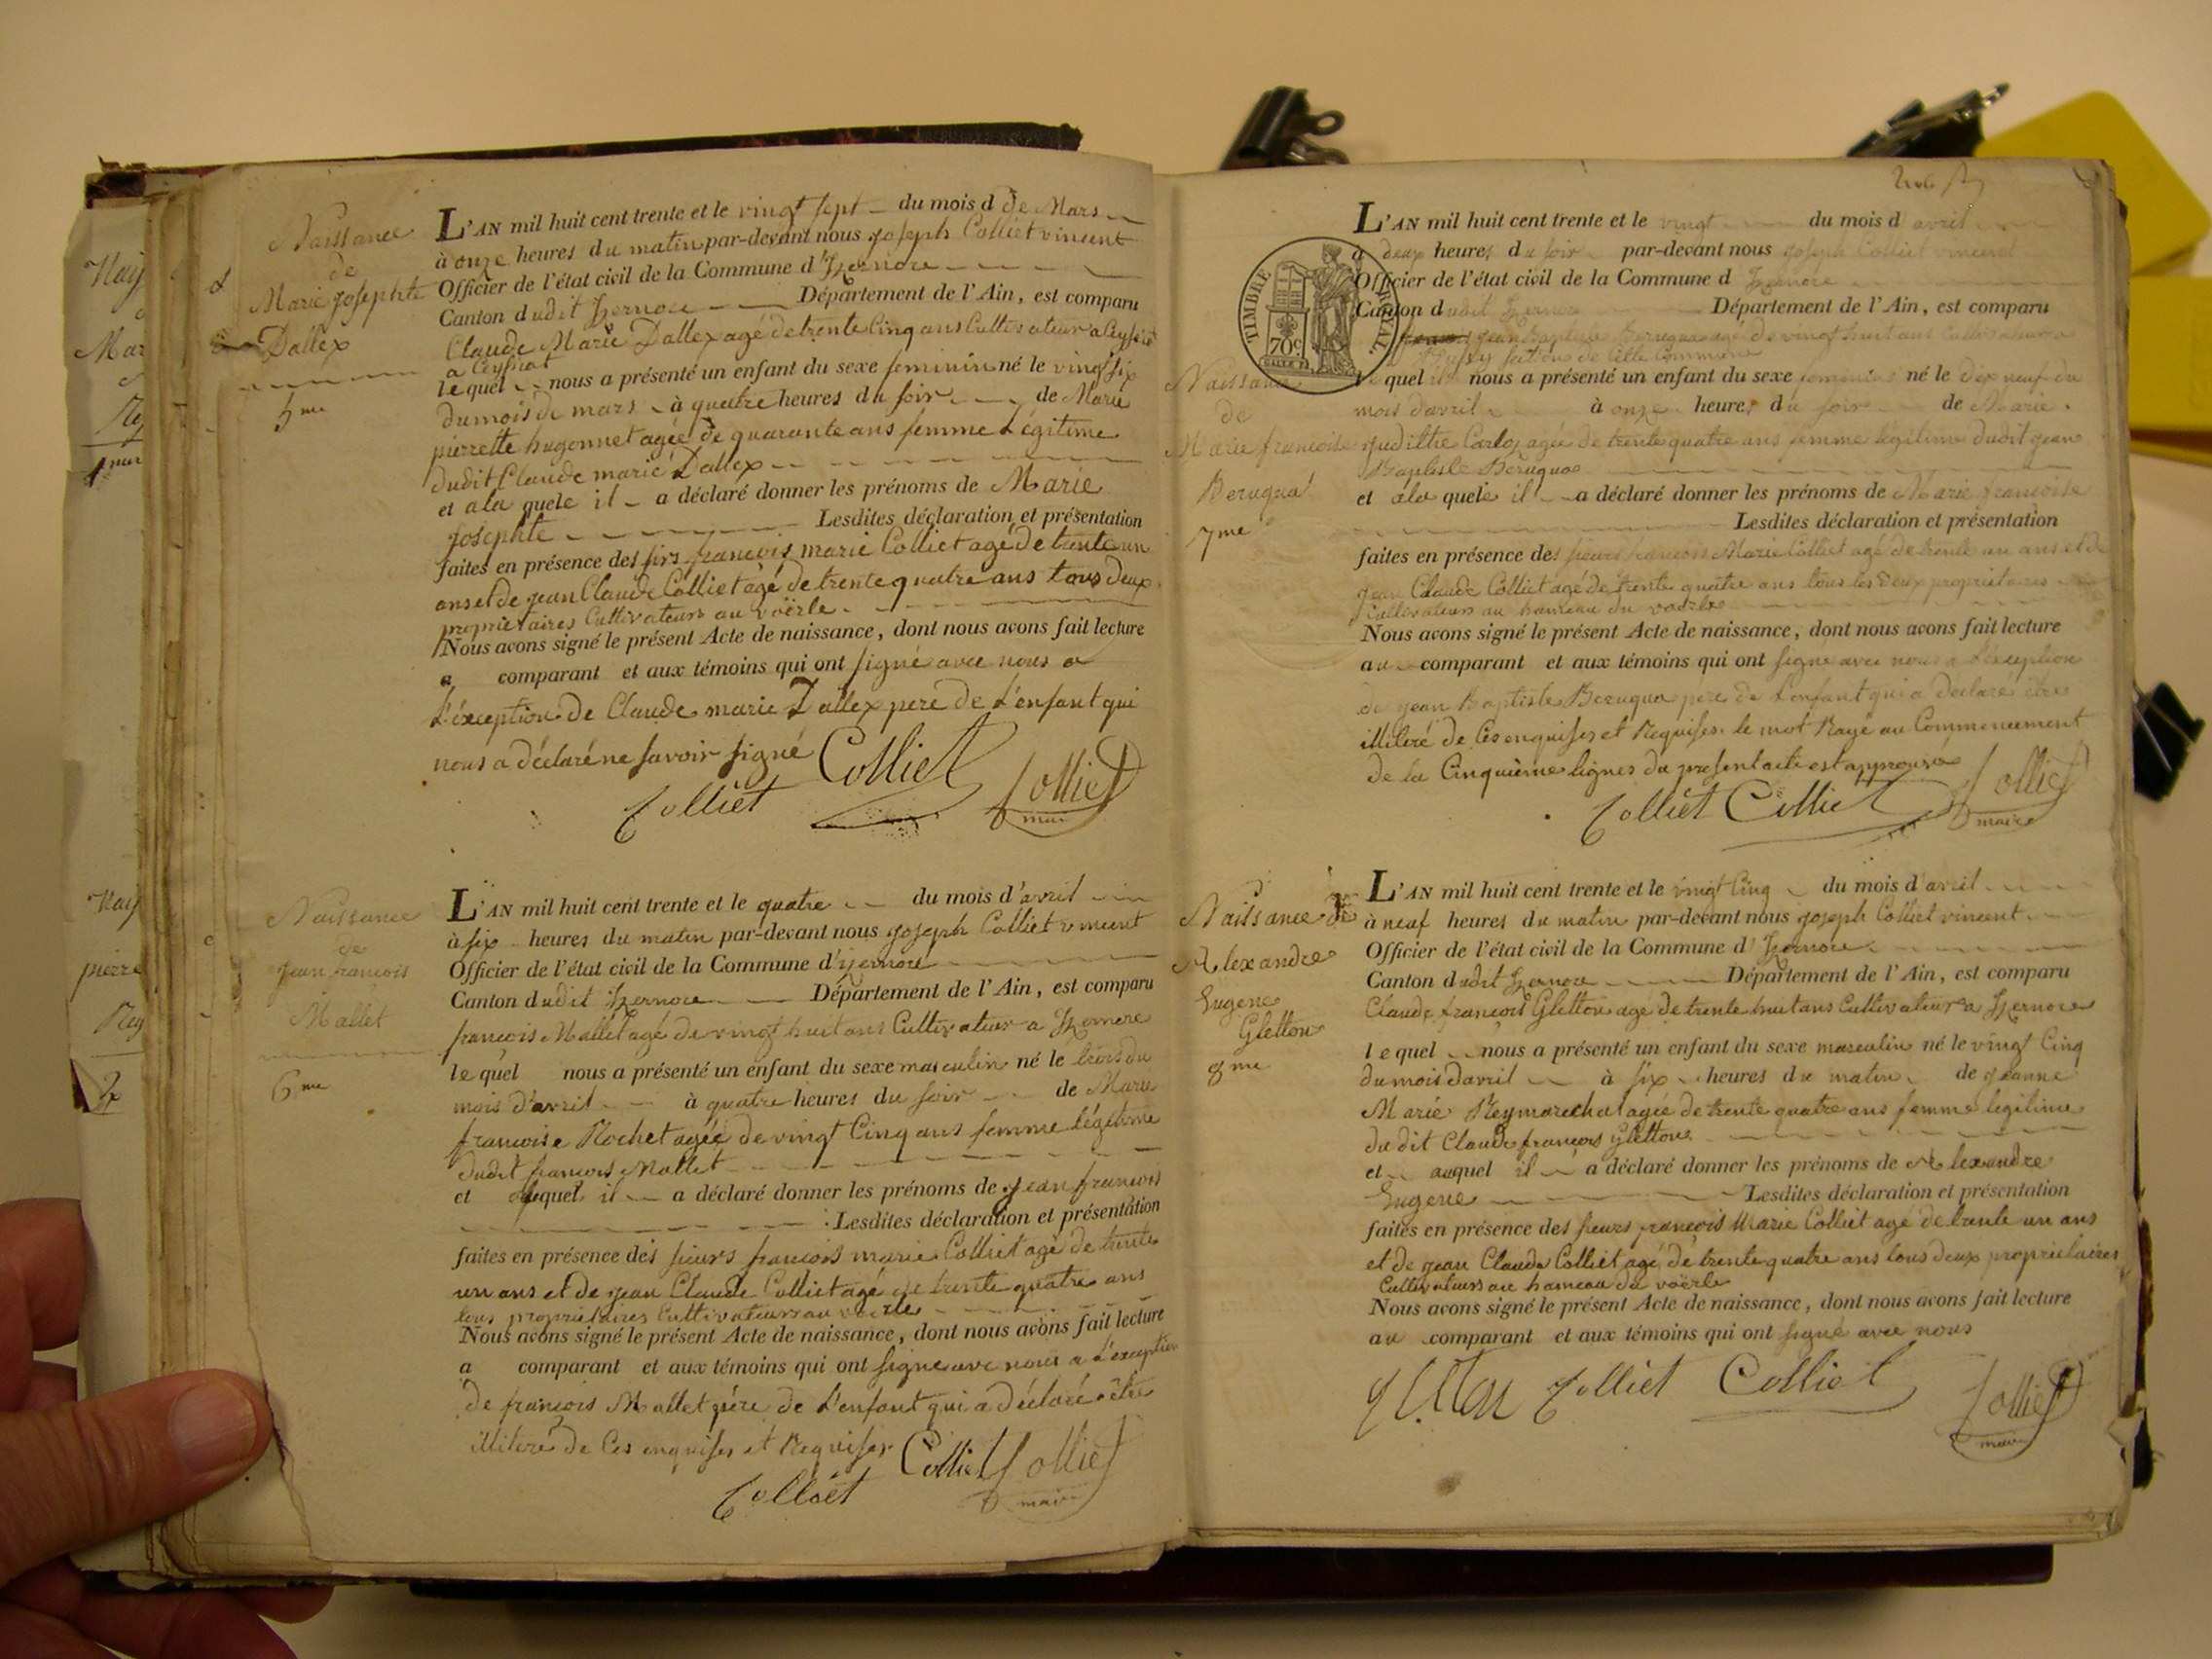 Naissance
de
Marie Josephte
Dallex
5me
L'AN mil huit cent trente et le vingt sept du mois d de Mars
à onze heures du matin par-devant nous joseph Colliet vincent
Officier de l'état civil de la Commune d'Izernore
Canton dudit Izernore Département de l'Ain, est comparu
Claude Marie Dallex agé de trente Cinq ans Cultivateur a Ceyssiat
a Ceyssiat
lequel nous a présenté un enfant du sexe feminin né le vingt six
du mois de mars à quatre heures du soir de Marie
pierrette hugonnet agée de quarante ans femme Légitime
dudit Claude marie Dallex
et a la quele il a déclaré donner les prénoms de Marie
Josephte Lesdites déclaration et présentation
faites en présence des sirs francois marie Colliet agé de trente un
ans et de jean Claude Colliet agé de trente quatre ans tous deux
proprietaires Cultivateurs au voërle
Nous avons signé le présent Acte de naissance, dont nous avons fait lecture
a comparant et aux témoins qui ont signé avec nous a
L'éxception de Claude marie Dallex pere de L'enfant qui
nous a déclaré ne savoir signé Colliet
Colliet Colliet
Naissance
de
jean francois
Mallet
6me
L'AN mil huit cent trente et le quatre du mois d'avril
à six heures du matin par-devant nous joseph Colliet vincent
Officier de l'état civil de la Commune d'izernore
Canton dudit Izernore Département de l'Ain, est comparu
francois Mallet agé de vingt huit ans Cultivateur a Izernore
lequel nous a présenté un enfant du sexe masculin né le trois du
mois d'avril à quatre heures du soir de Marie
francoise Rochet agée de vingt Cinq ans femme légitime
dudit francois Mallet
et auquel il a déclaré donner les prénoms de jean francois
Lesdites déclaration et présentation
faites en présence des sieurs francois marie Colliet agé de trente
un ans et de jean Claude Colliet agé de trente quatre ans
tous proprietaires Cultivateurs au voërle
Nous avons signé le présent Acte de naissance, dont nous avons fait lecture
a comparant et aux témoins qui ont signe avec nous a L'exception
de francois Mallet pére de L'enfant qui a déclaré être
illiteré de Ces enquises et Requises Colliet Colliet
Colliet maire
TIMBRE ROYAL
70c
Naissance
de
Marie francoise
Beruqua
7me
L'AN mil huit cent trente et le vingt du mois d avril
à deux heures du soir par-devant nous joseph Colliet vincent
Officier de l'état civil de la Commune d Izernore
Canton dudit Izernore Département de l'Ain, est comparu
jean Baptiste Beruqua agé de vingt huit ans Cultivateur a
de Cette Commune
lequel nous a présenté un enfant du sexe feminin né le dix neuf du
mois davril à onze heures du soir de Marie
judilthe Carloz agée de trente quatre ans femme légitime dudit jean
Baptiste Béruqua
et a la quele il a déclaré donner les prénoms de Marie francoise
Lesdites déclaration et présentation
faites en présence des sieurs francois Marie Colliet agé de trente un ans et de
jean Claude Colliet agé de trente quatre ans tous les deux proprietaires
Cultivateurs au hameau du voërle
Nous avons signé le présent Acte de naissance, dont nous avons fait lecture
au comparant et aux témoins qui ont signé avec nous a L'éxception
de jean Baptiste Beruqua pere de L'enfant qui a déclaré être
illiteré de Ces enquises et Requises. le mot Rayé au Commencement
de la Cinquième lignes du present acte est approuvé
Colliet Colliet Colliet
maire
Naissance de
Alexandre
Eugene
Gletton
8me
L'AN mil huit cent trente et le vingt Cinq du mois d'avril
à neuf heures du matin par-devant nous joseph Colliet vincent
Officier de l'état civil de la Commune d'Izernore
Canton dudit Izernore Département de l'Ain, est comparu
Claude francois Gletton agé de trente huit ans Cultivateur a Izernore
lequel nous a présenté un enfant du sexe masculin né le vingt Cinq
du mois davril à six heures du matin de jeanne
Marie Reymarechal agée de trente quatre ans femme legitime
dudit Claude francois gletton
et auquel il a déclaré donner les prénoms de Alexandre
Eugene Lesdites déclaration et présentation
faites en présence des sieurs francois Marie Colliet agé de trente un ans
et de jean Claude Colliet agé de trente quatre ans tous deux proprietaires
Cultivateurs au hameau du voërle
Nous avons signé le présent Acte de naissance, dont nous avons fait lecture
au comparant et aux témoins qui ont signé avec nous
Colliet Colliet Colliet
maire